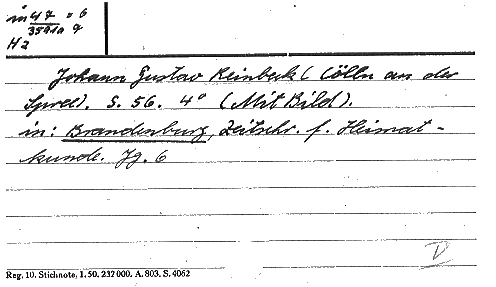 in 47 = 6
35910 9
H2
Johann Gustav Reinbeck (Cölln an der
Spree). S. 56. 4° (Mit Bild).
in: Brandenburg, Zeitschr. f. Heimat-
kunde. Jg. 6
D
Reg. 10. Stichnote, 1. 50. 232000. A. 803. S. 4062